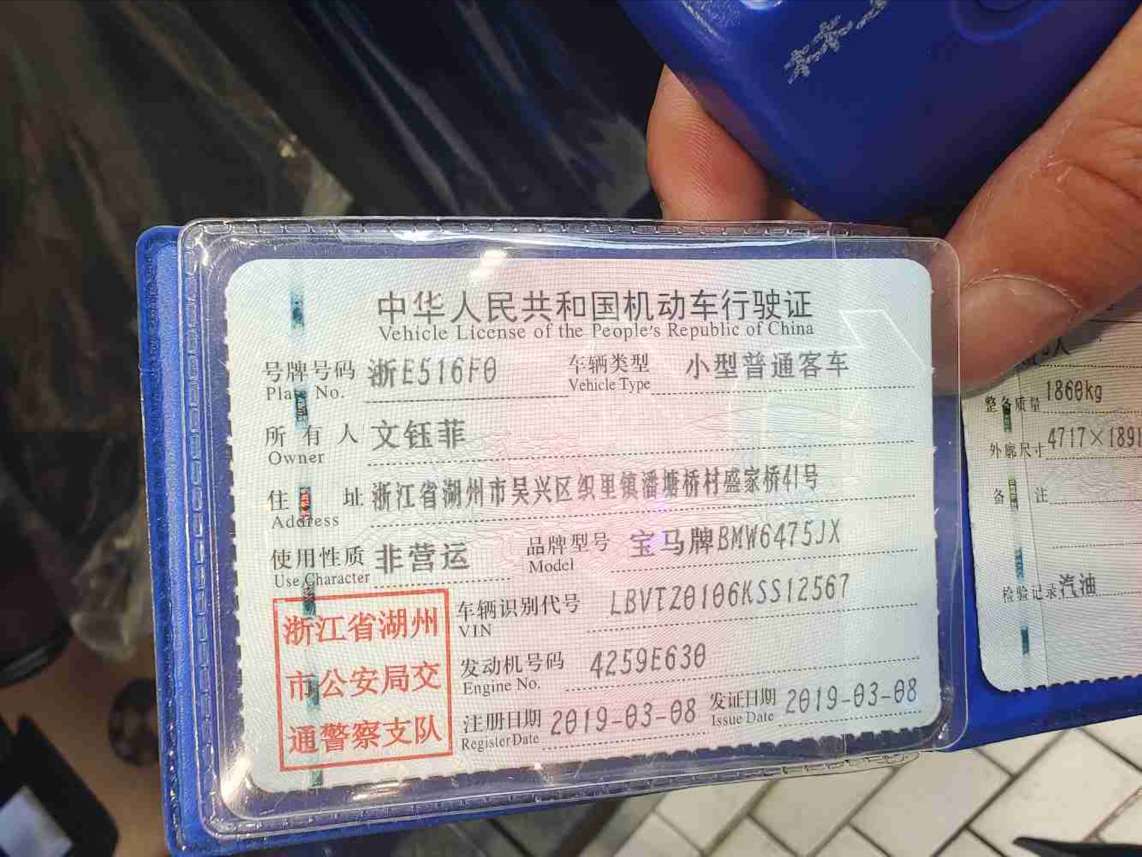 中华人民共和国机动车行驶证
Vehicle License of the People's Republic of China
号牌号码 浙E516F0 车辆类型 小型普通客车
Plate No. Vehicle Type
所有人 文钰菲
Owner
住址 浙江省湖州市吴兴区织里镇潘塘桥村盛家桥41号
Address
使用性质 非营运 品牌型号 宝马牌BMW6475JX
Use Character Model
车辆识别代号 LBVTZ0106KSS12567
VIN
发动机号码 4259E630
Engine No.
注册日期 2019-03-08 发证日期 2019-03-08
Register Date Issue Date
浙江省湖州
市公安局交
通警察支队
人
整备质量 1860kg
外廓尺寸 4717×1891
备注
检验记录 汽油